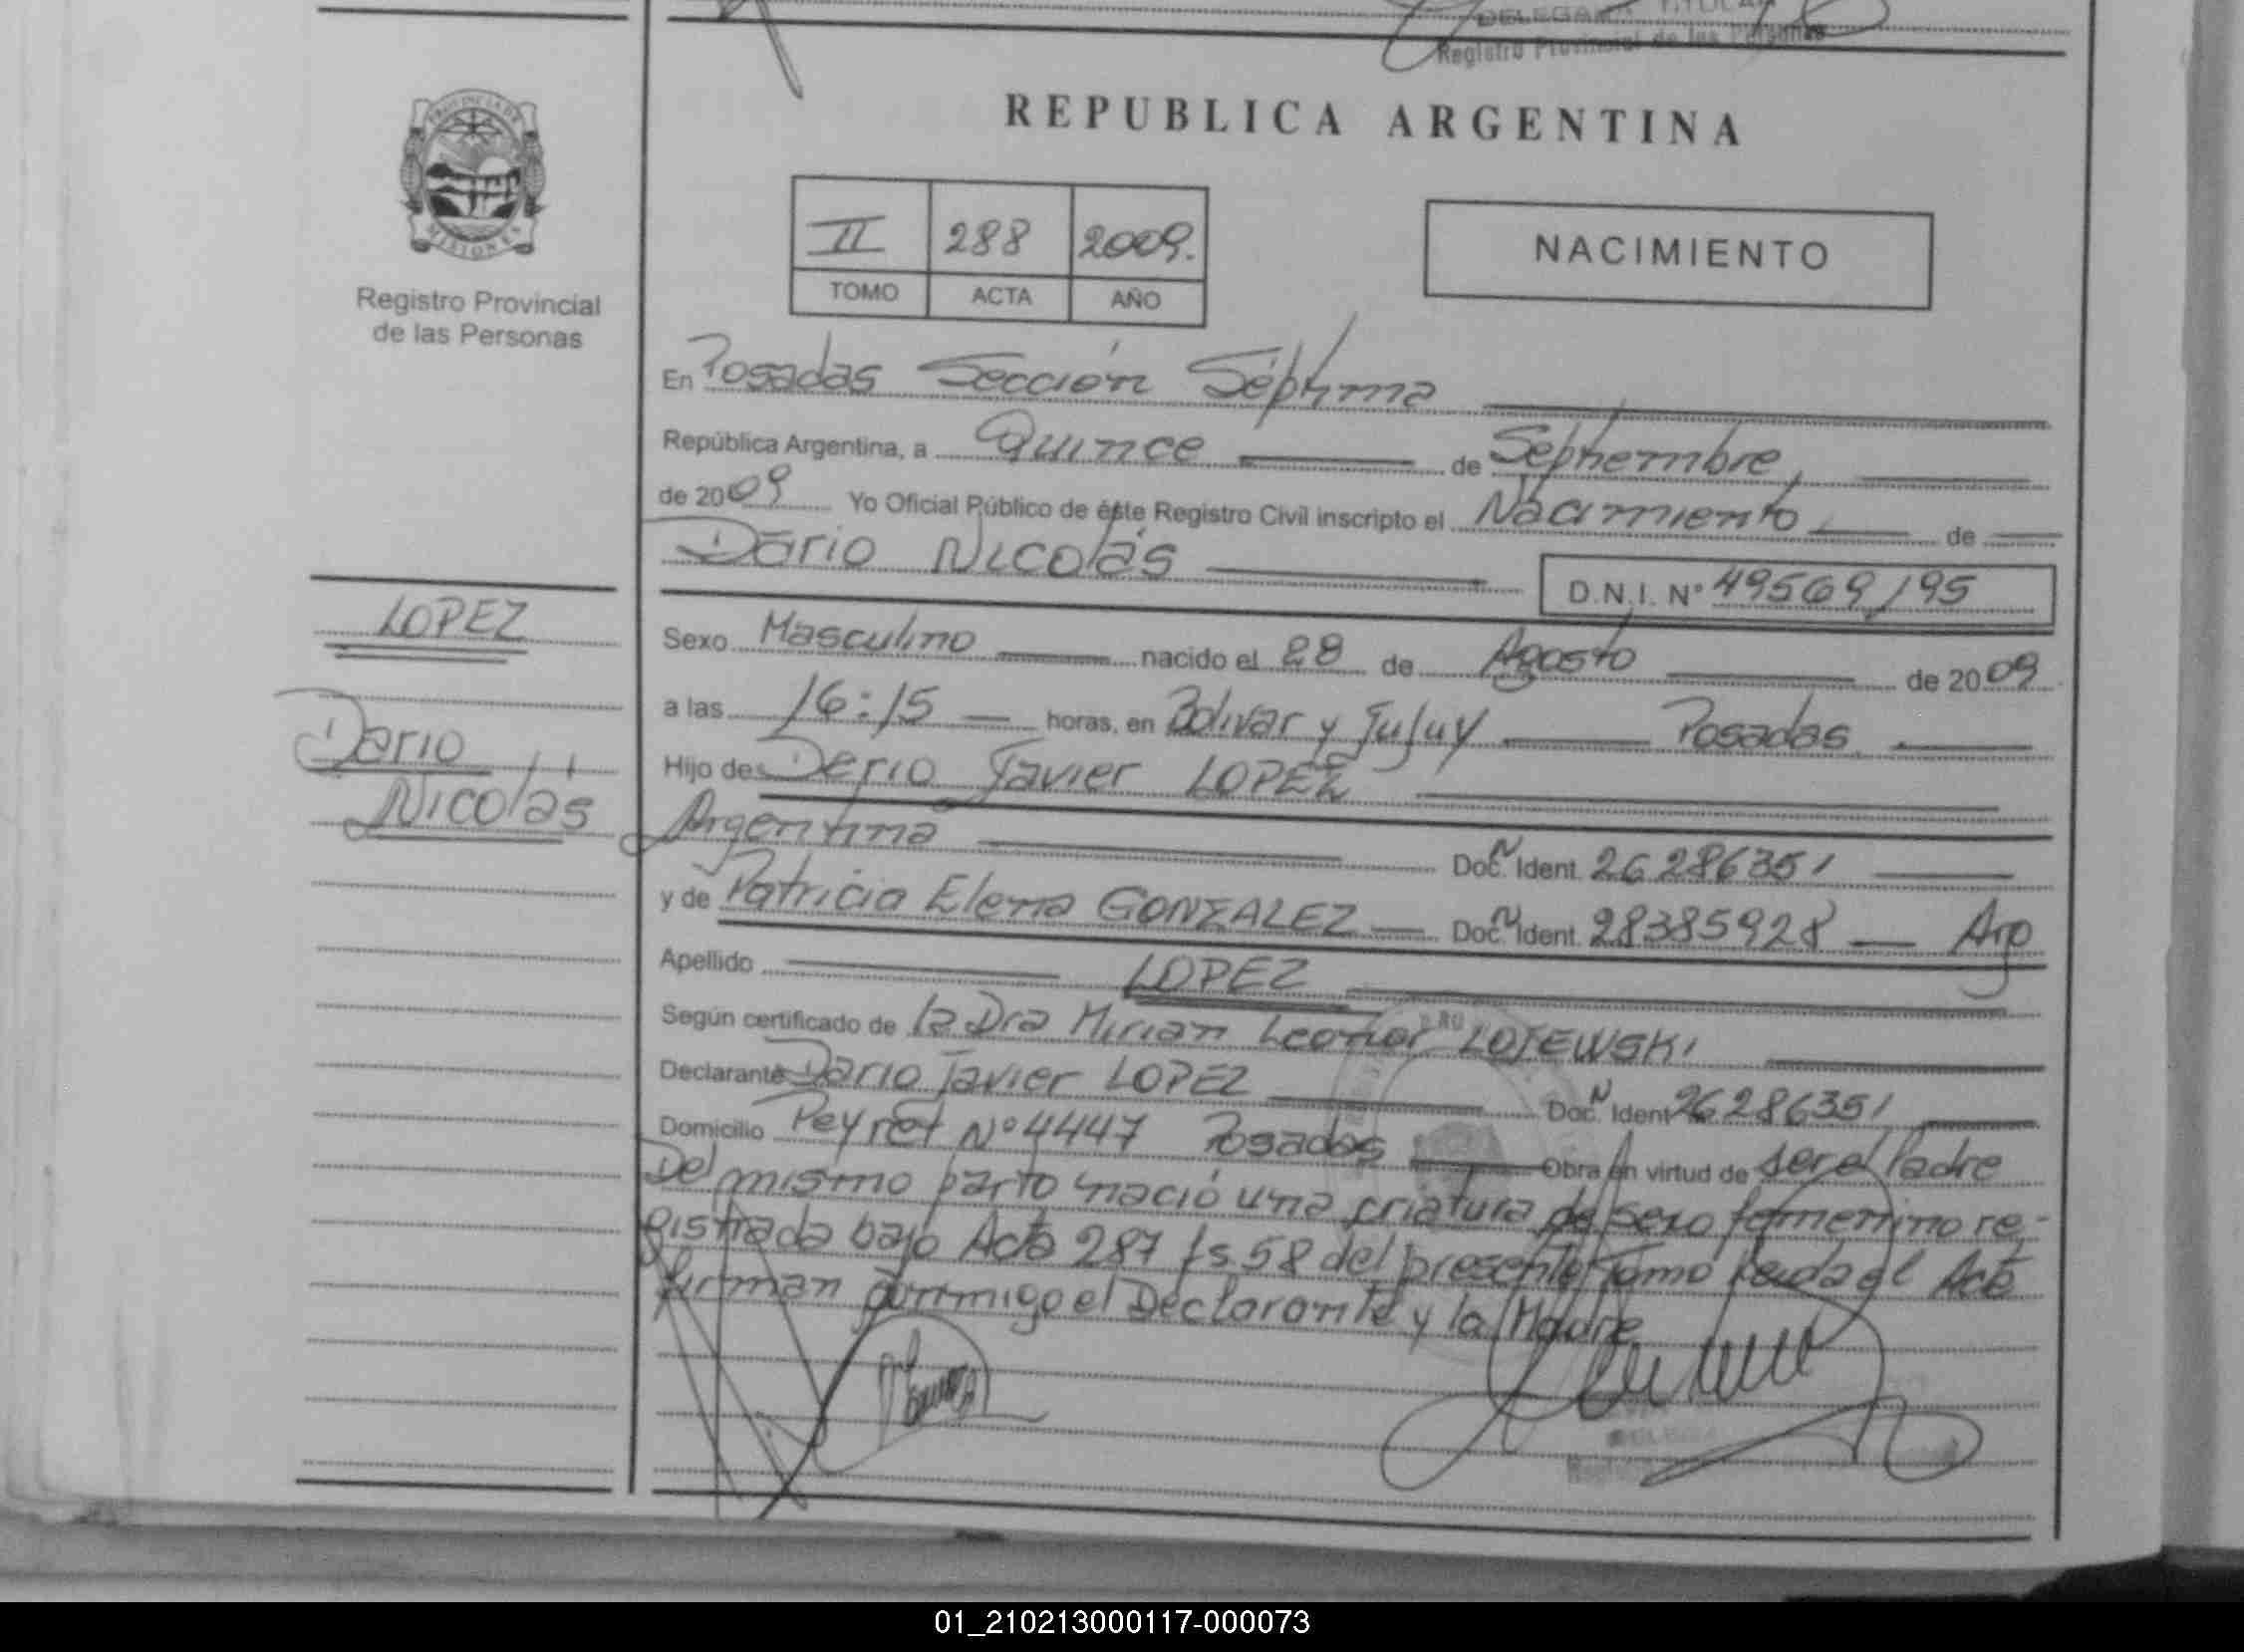 DELEGADA TITULAR
Registro Provincial de las Personas
PROVINCIA DE
MISIONES
Registro Provincial
de las Personas
REPUBLICA ARGENTINA
II 288 2009.
TOMO ACTA AÑO
NACIMIENTO
En Posadas Sección Séptima
República Argentina, a Quince de Septiembre,
de 2009 Yo Oficial Público de éste Registro Civil inscripto el Nacimiento de
Dario Nicolás
D.N.I. Nº 49569195
LOPEZ
Dario
Nicolás
Sexo Masculino nacido el 28 de Agosto de 2009
a las 16:15 horas, en Bolivar y Jujuy Posadas
Hijo de Dario Javier LOPEZ
Argentina Doc. Ident. 26286351
y de Patricia Elena GONZALEZ Doc. Ident. 28385928 Arg
Apellido LOPEZ
Según certificado de la Dra Mirian Leonor LOJEWSKI
Declarante Dario Javier LOPEZ Doc. Ident 26286351
Domicilio Peyret Nº 4447 Posadas Obra en virtud de ser el Padre
Del mismo parto nació una criatura de sexo femenino re-
gistrada bajo Acta 287 fs 58 del presente Tomo Leida el Acta
firman conmigo el Declarante y la Madre
01_210213000117-000073